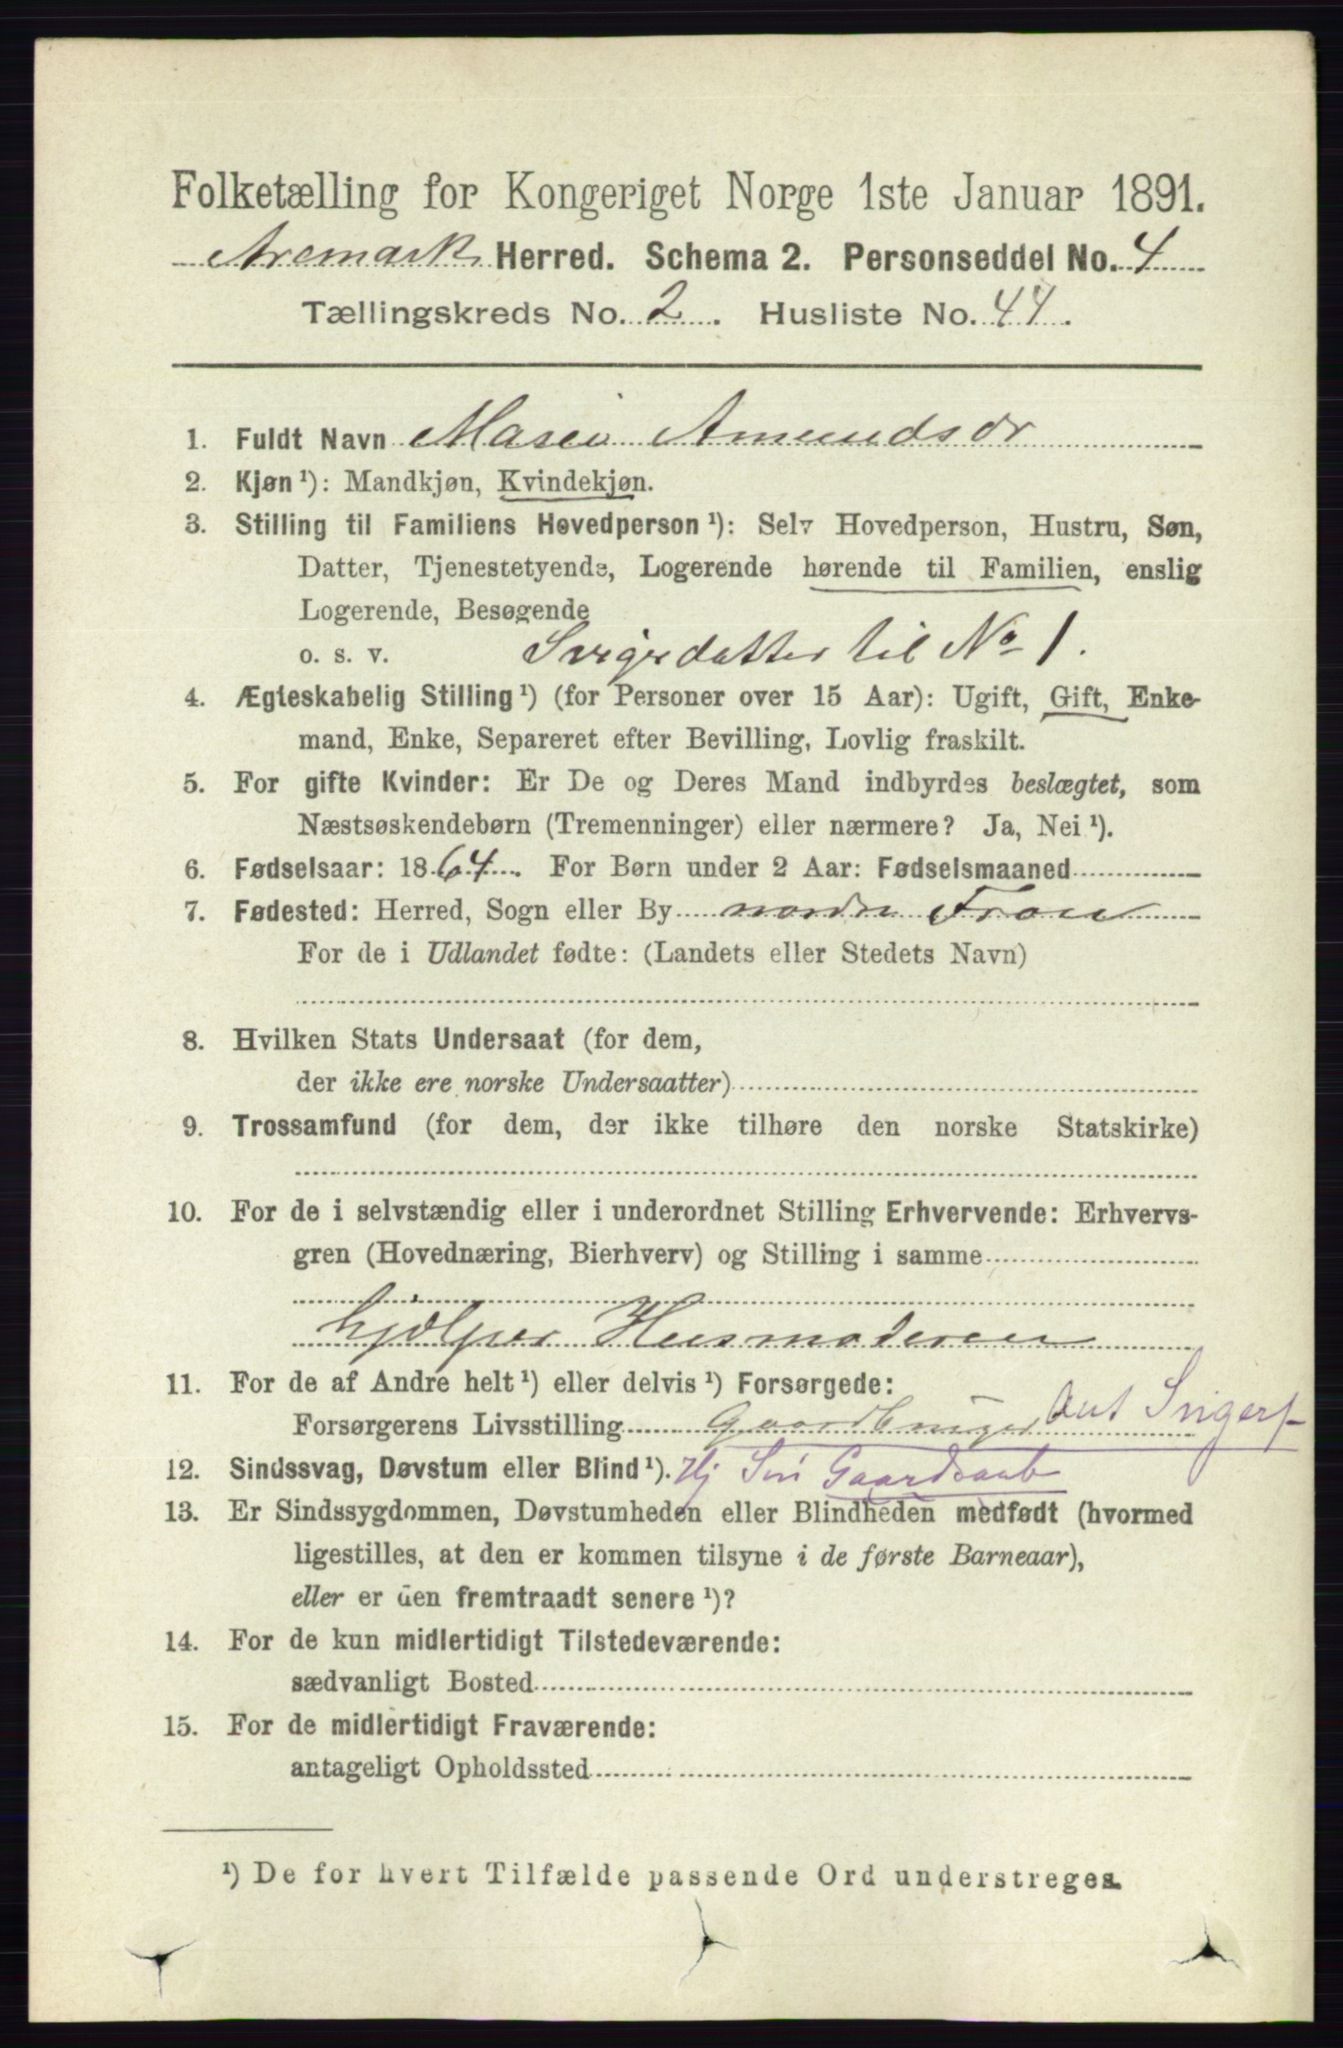 Folketælling for Kongeriget Norge 1ste Januar 1891.
Aremark Herred. Schema 2. Personseddel No. 4
Tællingskreds No. 2. Husliste No. 44.
1. Fuldt Navn Maren Amundsdr
2. Kjøn¹): Mandkjøn, Kvindekjøn.
3. Stilling til Familiens Hovedperson¹): Selv Hovedperson, Hustru, Søn,
Datter, Tjenestetyende, Logerende hørende til Familien, enslig
Logerende, Besøgende
o. s. v. Svigerdatter til No 1.
4. Ægteskabelig Stilling¹) (for Personer over 15 Aar): Ugift, Gift, Enke-
mand, Enke, Separeret efter Bevilling, Lovlig fraskilt.
5. For gifte Kvinder: Er De og Deres Mand indbyrdes beslægtet, som
Næstsøskendebørn (Tremenninger) eller nærmere? Ja, Nei¹).
6. Fødselsaar: 1864. For Børn under 2 Aar: Fødselsmaaned
7. Fødested: Herred, Sogn eller By nordre Fron
For de i Udlandet fødte: (Landets eller Stedets Navn)
8. Hvilken Stats Undersaat (for dem,
der ikke ere norske Undersaatter)
9. Trossamfund (for dem, der ikke tilhøre den norske Statskirke)
10. For de i selvstændig eller i underordnet Stilling Erhvervende: Erhvervs-
gren (Hovednæring, Bierhverv) og Stilling i samme
hjælper Husmoderen
11. For de af Andre helt¹) eller delvis¹) Forsørgede:
Forsørgerens Livsstilling Gaardbruger Svigerf
12. Sindssvag, Døvstum eller Blind¹). Hj
13. Er Sindssygdommen, Døvstumheden eller Blindheden medfødt (hvormed
ligestilles, at den er kommen tilsyne i de første Barneaar),
eller er den fremtraadt senere¹)?
14. For de kun midlertidigt Tilstedeværende:
sædvanligt Bosted
15. For de midlertidigt Fraværende:
antageligt Opholdssted
¹) De for hvert Tilfælde passende Ord understreges.